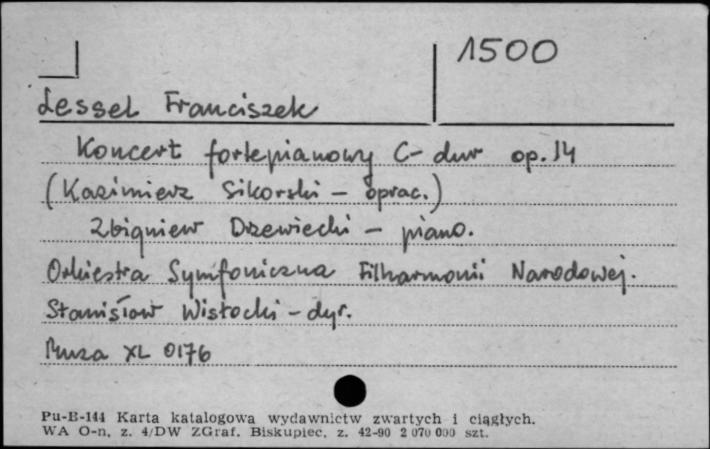 1500
Lessel Franciszek
Koncert fortepianowy C-dur op. 14
(Kazimierz Sikorski - oprac.)
Zbigniew Drzewiecki - piano.
Orkiestra Symfoniczna Filharmonii Narodowej.
Stanisław Wisłocki - dyr.
Muza XL 0176
Pu-B-144 Karta katalogowa wydawnictw zwartych i ciągłych.
WA O-n, z. 4/DW ZGraf. Biskupiec, z. 42-90 2 070 000 szt.